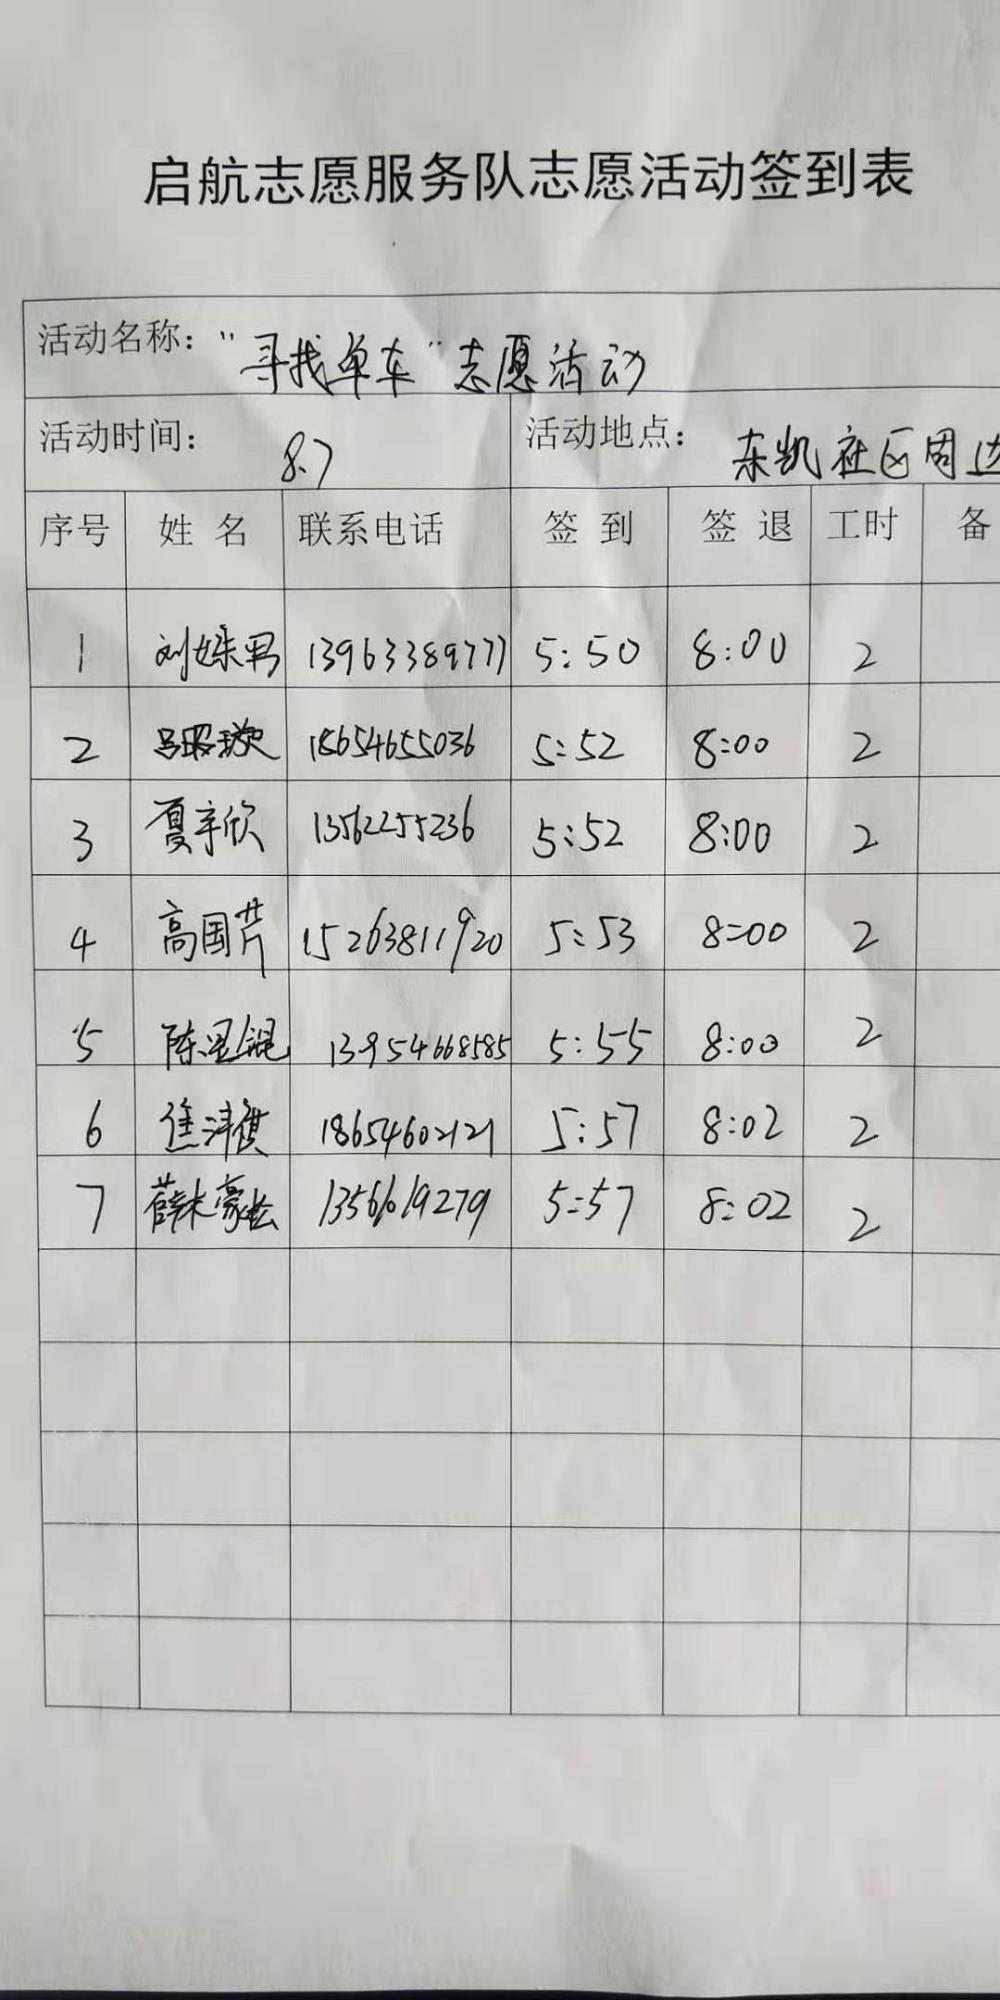 启航志愿服务队志愿活动签到表
活动名称："寻找单车"志愿活动
活动时间：8.7 活动地点：东凯社区周边
序号 姓名 联系电话 签到 签退 工时 备
1 刘姝男 13963389777 5:50 8:00 2
2 吕昭璇 18654655036 5:52 8:00 2
3 夏宇欣 13562255236 5:52 8:00 2
4 高国芹 15263811920 5:53 8:00 2
5 陈星锟 13954668585 5:55 8:00 2
6 焦沣祺 18654602121 5:57 8:02 2
7 薛 5:57 8:02 2